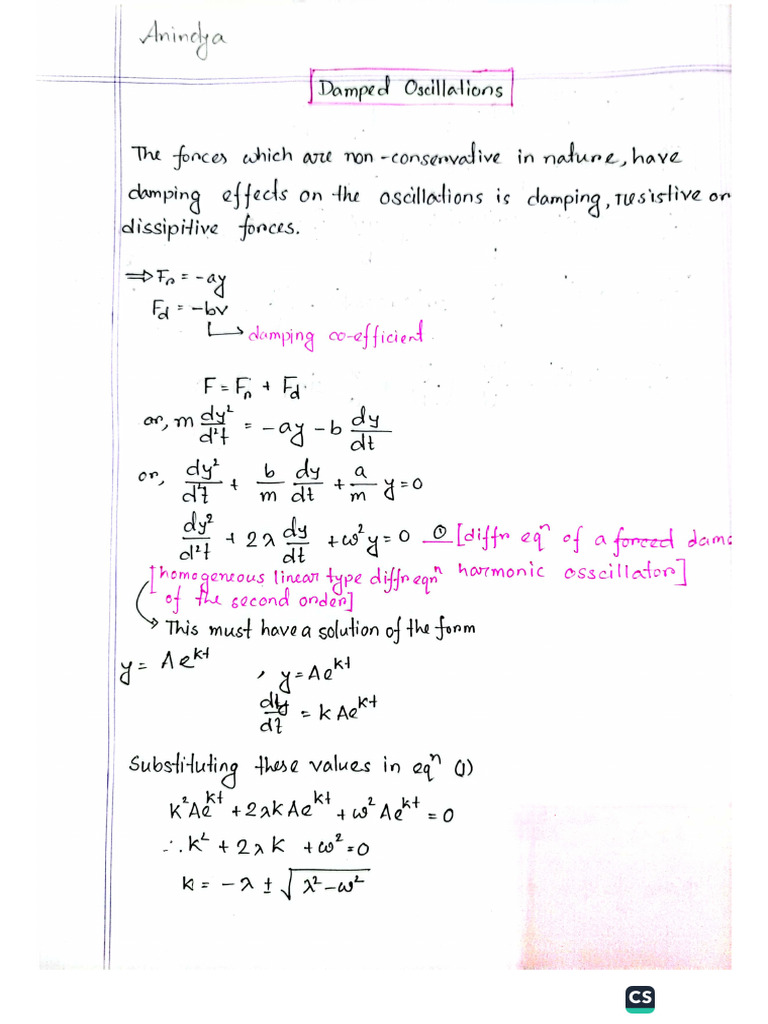 Anindya
Damped Oscillations
The forces which are non-conservative in nature, have
damping effects on the oscillations is damping, resistive or
dissipitive forces.
⇒ Fn = -ay
Fd = -bv
→ damping co-efficient
F = Fn + Fd.
or, m dy²/d²t = -ay - b dy/dt
or, dy²/d²t + b/m dy/dt + a/m y = 0
dy²/d²t + 2λ dy/dt + ω²y = 0 ① [diffr eqⁿ of a forced damo
[homogeneous linear type diffr eqⁿ harmonic osscillator]
of the second order]
→ This must have a solution of the form
y = Ae^kt , y = Ae^kt
dy/dt = kAe^kt
Substituting these values in eqⁿ (1)
k²Ae^kt + 2λkAe^kt + ω²Ae^kt = 0
∴ k² + 2λk + ω² = 0
k = -λ ± √(λ² - ω²)
CS